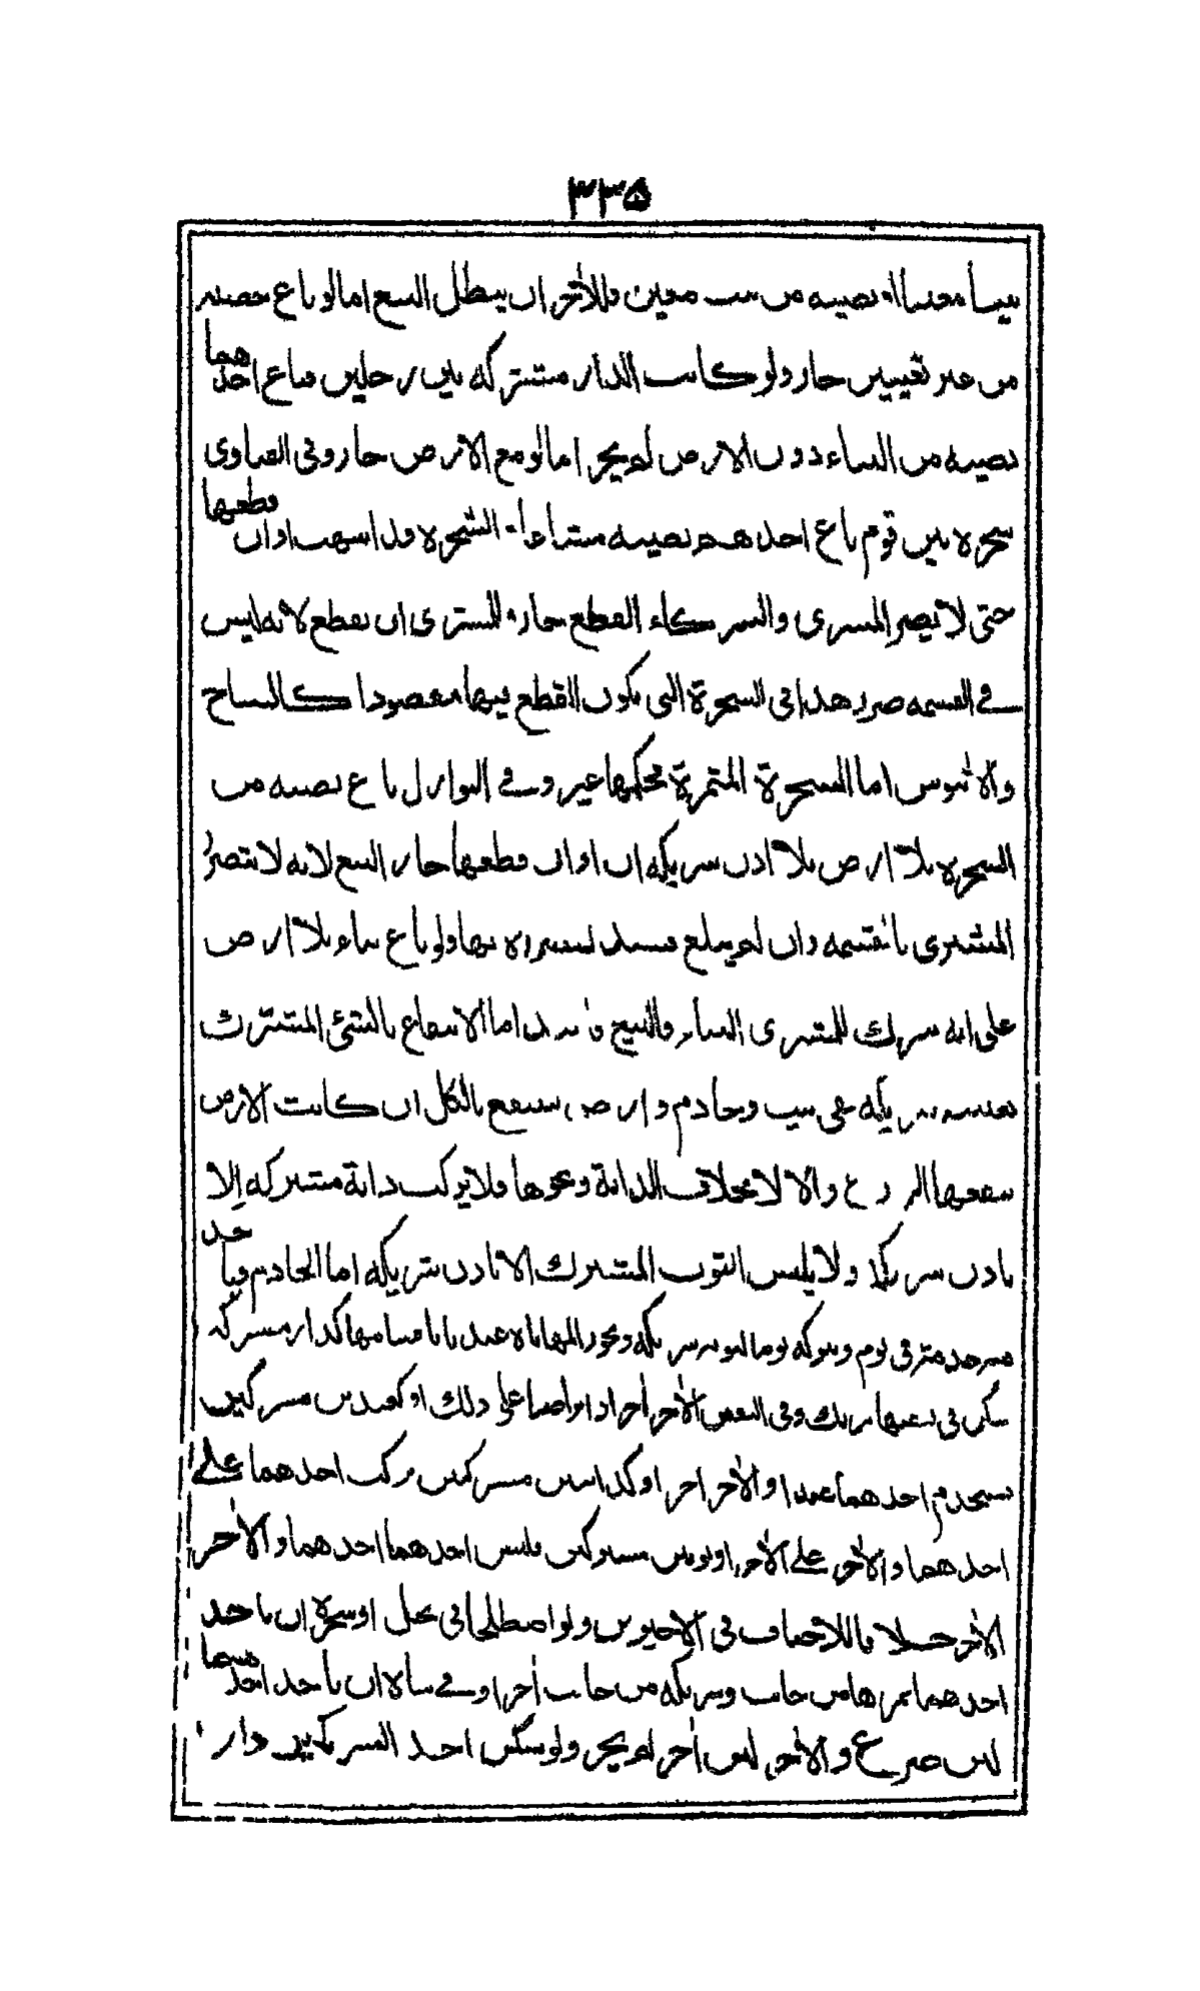 ٣٣٥
بيتا معينا او نصيبه من بيت معين فللآخر ان يبطل البيع اما لو باع حصته
من غير تعيين جاز ولو كانت الدار مشتركة بين رجلين فباع احدهما
نصيبه من البناء دون الارض لم يجز اما لو مع الارض جاز وفى الفتاوى
شجرة بين قوم باع احدهم نصيبه مشاعا الشجرة قد انتهت اوان قطعها
حتى لا يضر المشترى والشركاء القطع جاز وللمشترى ان يقطع لانه ليس
فى القسمة ضرر هذا فى الشجرة التى يكون القطع فيها مقصودا كالساج
والآبنوس اما الشجرة المثمرة فحكمها غير وفى النوازل باع نصيبه من
الشجرة بلا ارض بلا اذن شريكه ان اوان قطعها جاز البيع لانه لا يتضرر
المشترى بالقسمة وان لم يبلغ فسد لتضرره بها ولو باع بناء بلا ارض
على انه شرك للمشترى البناء فالبيع فاسد اما الانتفاع بالشئ المشترك
بغيبة شريكه ففى بيت وخادم وارض ينتفع بالكل ان كانت الارض
ينفعها الزرع والا لا بخلاف الدابة ونحوها فلا يركب دابة مشتركة الا
باذن شريكه ولا يلبس الثوب المشترك الا باذن شريكه اما الخادم فياخذ
من خدمته فى يوم ويتركه يوما لنوبة شريكه ونحو المهاياة عبد يتهايا فيها كدار مشتركة
سكن فى بعضها شريك وفى البعض الآخر آخر اذا تراضيا على ذلك او كعبدين مشتركين
يستخدم احدهما عبدا والآخر آخر او كدابتين مشتركتين يركب احدهما على
احدهما والآخر على الآخر او ثوبين مشتركين يلبس احدهما احدهما والآخر
الآخر خلافا للخصاف فى الآخيرين ولو اصطلحا فى نخل او شجرة ان ياخذ
احدهما ثمرها من جانب وشريكه من جانب آخر او فى شاة ان ياخذ احدهما
لبن ضرع والآخر لبن آخر لم يجز ولو سكن احد الشريكين دار